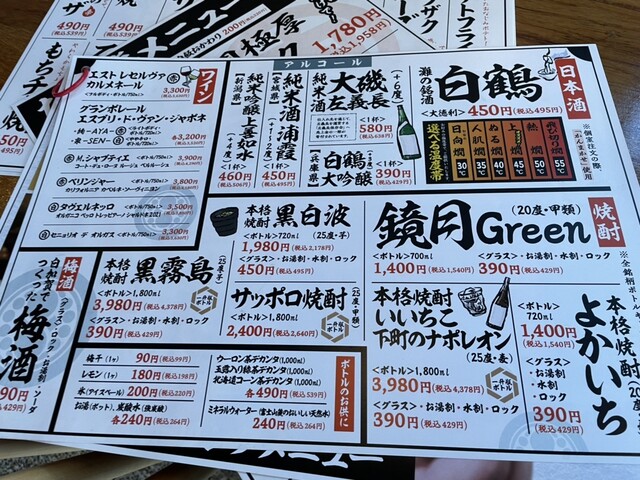 アルコール
日本酒
灘の銘酒
白鶴
<大徳利>450円(税込495円)
選べる温度帯
日向燗 30℃
人肌燗 35℃
ぬる燗 40℃
上燗 45℃
熱燗 50℃
飛び切り燗 55℃
(+6度)
磯
大左義長
純米酒
<1杯>
580円
(税込638円)
(兵庫県)
白鶴
大吟醸
<1杯>
390円
(税込429円)
(宮城県)
純米酒 浦霞
(+1〜+2度)
<1杯>
450円
(税込495円)
(新潟県)
純米吟醸 上善如水
(+4度)
<1杯>
460円
(税込506円)
ワイン
エスト レセルヴァ
カルメネール
<フルボディ・ボトル/750ml>
3,300円
グランポレール
エスプリ・ド・ヴァン・ジャポネ
・絢-AYA-
・泉-SEN-
各3,200円
M.シャプティエ
3,900円
コート・デュ・ローヌ ルージュ ベルルーシュ
ベリンジャー
<ボトル/750ml>
3,800円
カリフォルニア カベルネ・ソーヴィニヨン
タヴェルネッロ
<ボトル/750ml>
3,500円
セニョリオ デ オルガス
<ボトル/750ml>
3,300円
焼酎
鏡月Green
(20度・甲類)
<ボトル>700ml
1,400円(税込1,540円)
<グラス>・お湯割・水割・ロック
390円(税込429円)
本格焼酎
黒白波
(25度・芋)
<ボトル>720ml
1,980円(税込2,178円)
<グラス>・お湯割・水割・ロック
450円(税込495円)
本格焼酎
黒霧島
(25度・芋)
<ボトル>1,800ml
3,980円(税込4,378円)
<グラス>・お湯割・水割・ロック
390円(税込429円)
サッポロ焼酎
(25度・甲類)
<ボトル>1,800ml
2,400円(税込2,640円)
一升瓶ボトル
本格焼酎
いいちこ
下町のナポレオン
(25度・麦)
<ボトル>1,800ml
3,980円(税込4,378円)
<グラス>・お湯割・水割・ロック
390円(税込429円)
一升瓶ボトル
本格焼酎
よかいち
<ボトル>
720ml
1,400円
(税込1,540円)
<グラス>
・お湯割
・水割
・ロック
390円
(税込429円)
梅酒
白加賀で
つくった
梅酒
(グラス)・ロック・お湯割・水割・ソーダ
90円
429円)
ボトルのお供に
梅干(1ヶ) 90円(税込99円)
レモン(1ヶ) 180円(税込198円)
氷(アイスペール) 200円(税込220円)
お湯(ポット)、炭酸水(強炭酸)
各240円(税込264円)
ウーロン茶デカンタ(1,000ml)
玉露入り緑茶デカンタ(1,000ml)
北海道コーン茶デカンタ(1,000ml)
各490円(税込539円)
ミネラルウォーター(富士山麓のおいしい天然水)
240円(税込264円)
490円
(税込539円)
極厚
1,780円
(税込1,958円)
200円